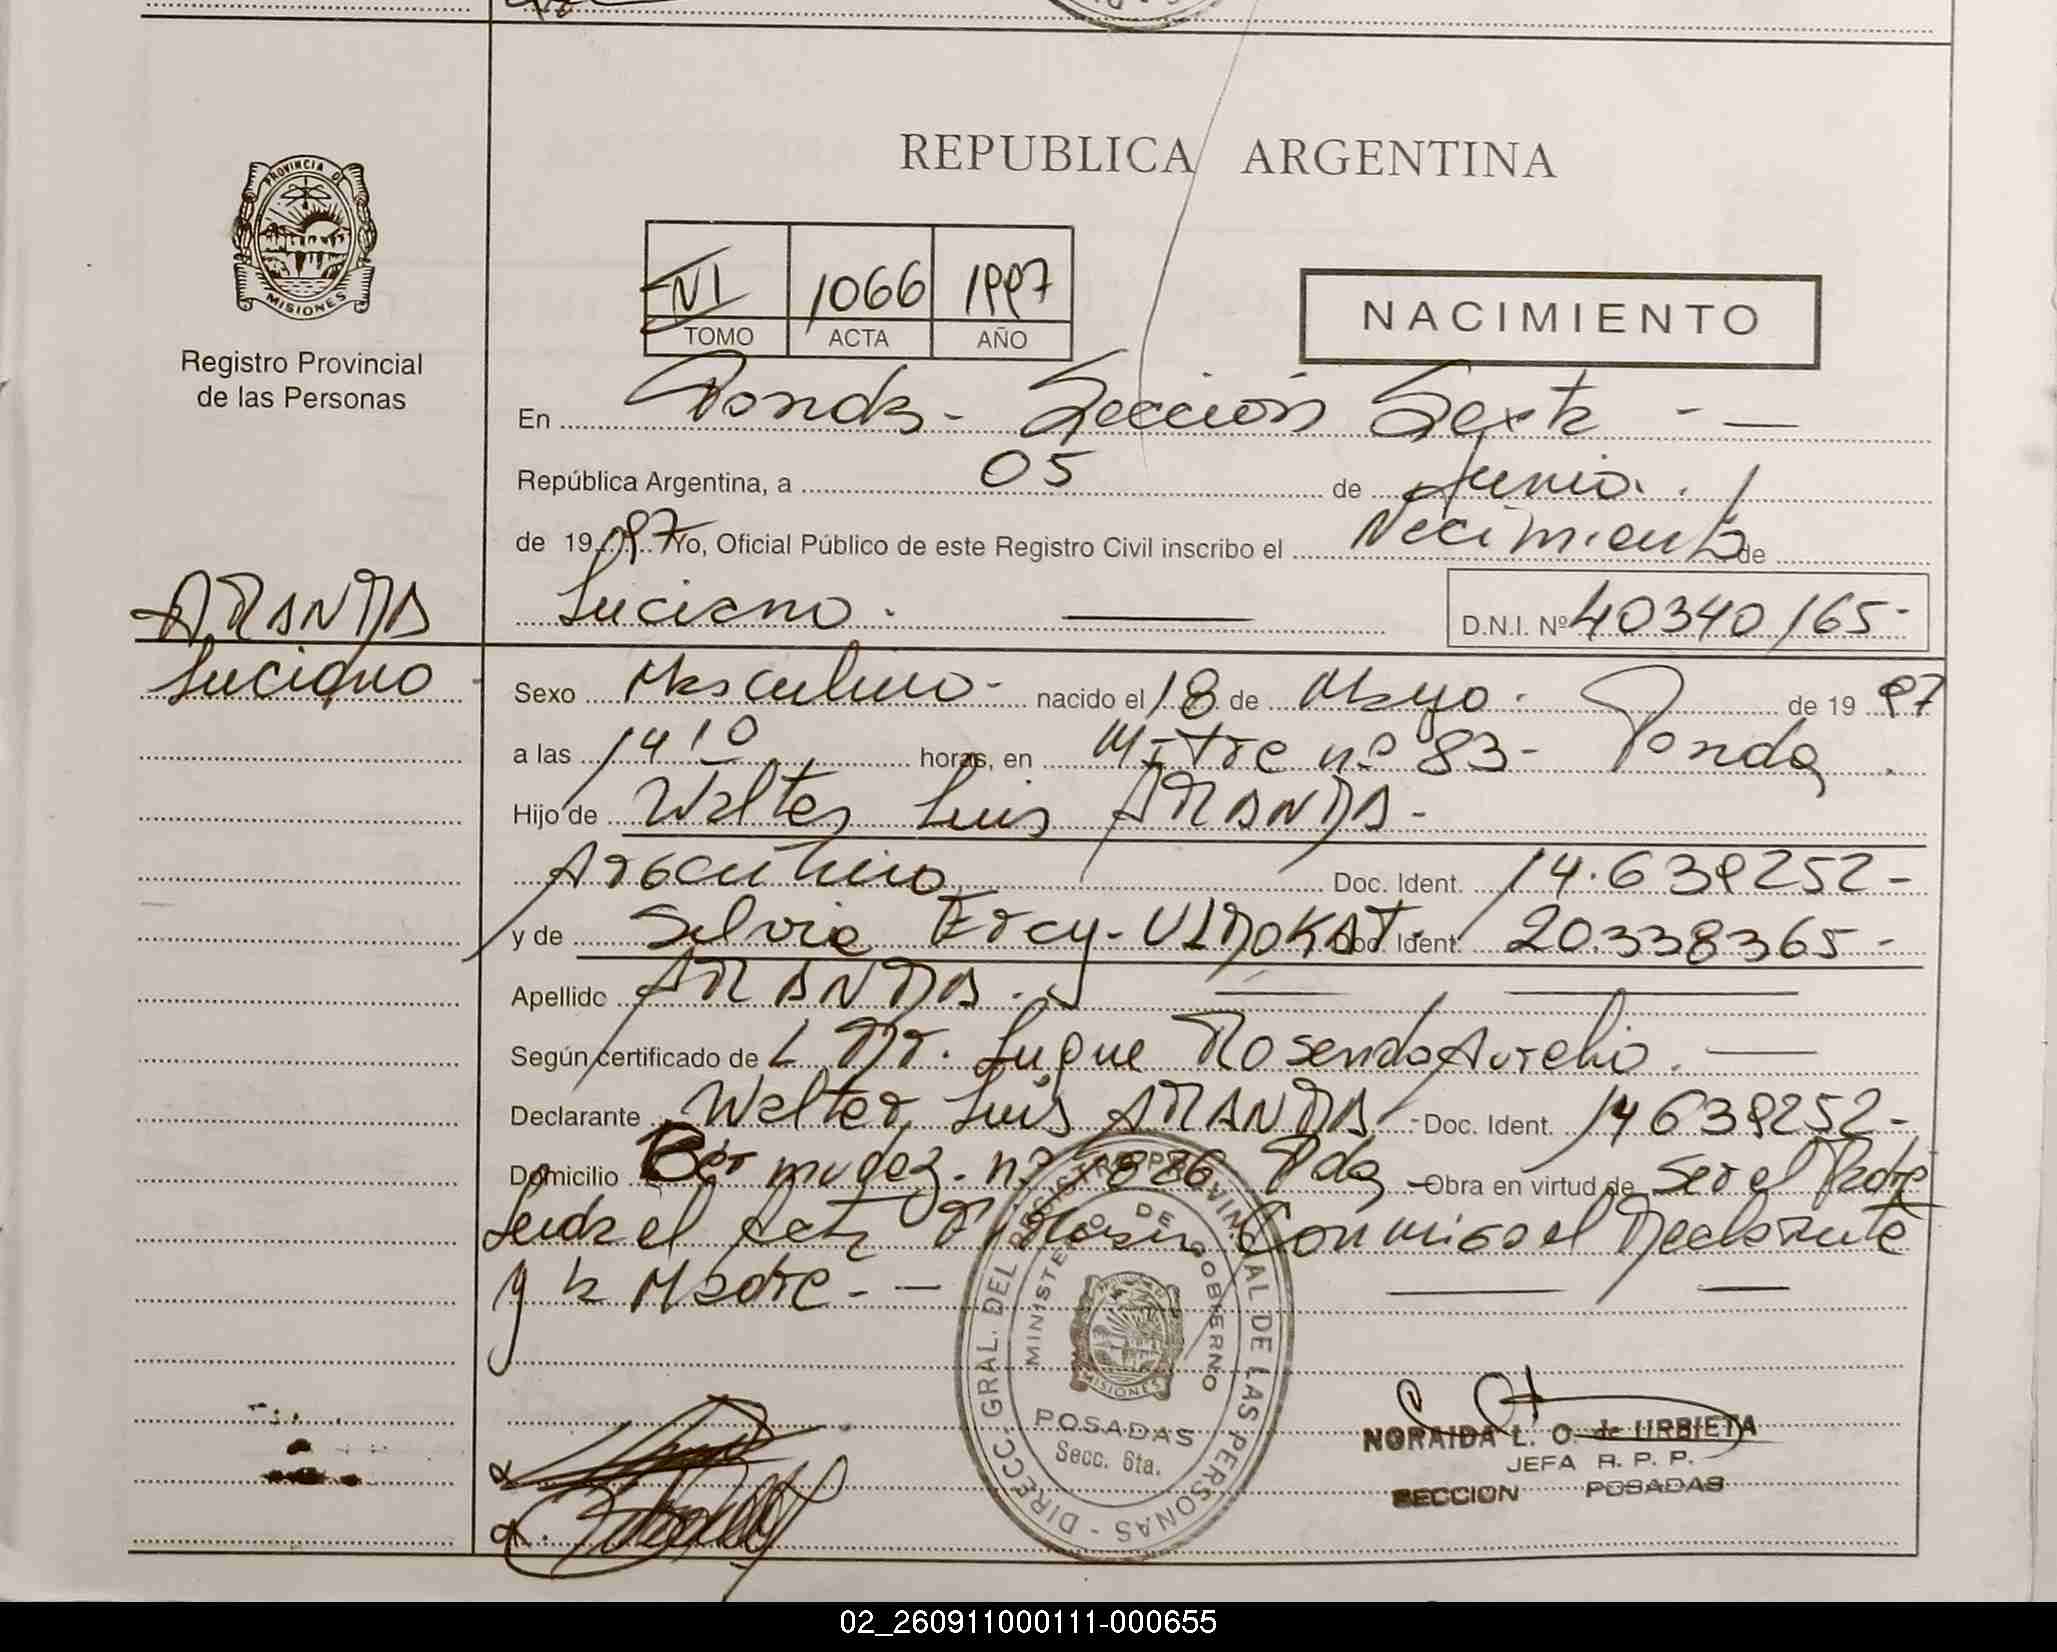 REPUBLICA ARGENTINA
PROVINCIA DE
MISIONES
Registro Provincial
de las Personas
1066 1997
TOMO ACTA AÑO
NACIMIENTO
En Posadas - Sección Sexta - —
República Argentina, a 05 de Junio.
de 1997 Yo, Oficial Público de este Registro Civil inscribo el Nacimiento de
Luciano. D.N.I. Nº 40340165-
ARANDA
Luciano
Sexo Masculino- nacido el 18 de Mayo. de 1997
a las 14 10 horas, en Mitre nº 83- Posadas
Hijo de Walter Luis ARANDA-
Argentino Doc. Ident. 14.639252-
y de Silvia Ercy- Doc. Ident. 20.338365-
Apellido ARANDA.
Según certificado de L Dr. Luque Rosendo Aurelio.
Declarante Walter Luis ARANDA - Doc. Ident. 14639252-
Domicilio Bermudez. nº 1886 Pdas - Obra en virtud de Ser el Padre
Leida el Acta Firman Conmigo el Declarante
y la Madre.- —
DIRECC. GRAL. DEL REGISTRO PROVINCIAL DE LAS PERSONAS -
MINISTERIO DE GOBIERNO
MISIONES
POSADAS
Secc. 6ta.
NORAIDA L. O. de URBIETA
JEFA R. P. P.
SECCION POSADAS
02_260911000111-000655